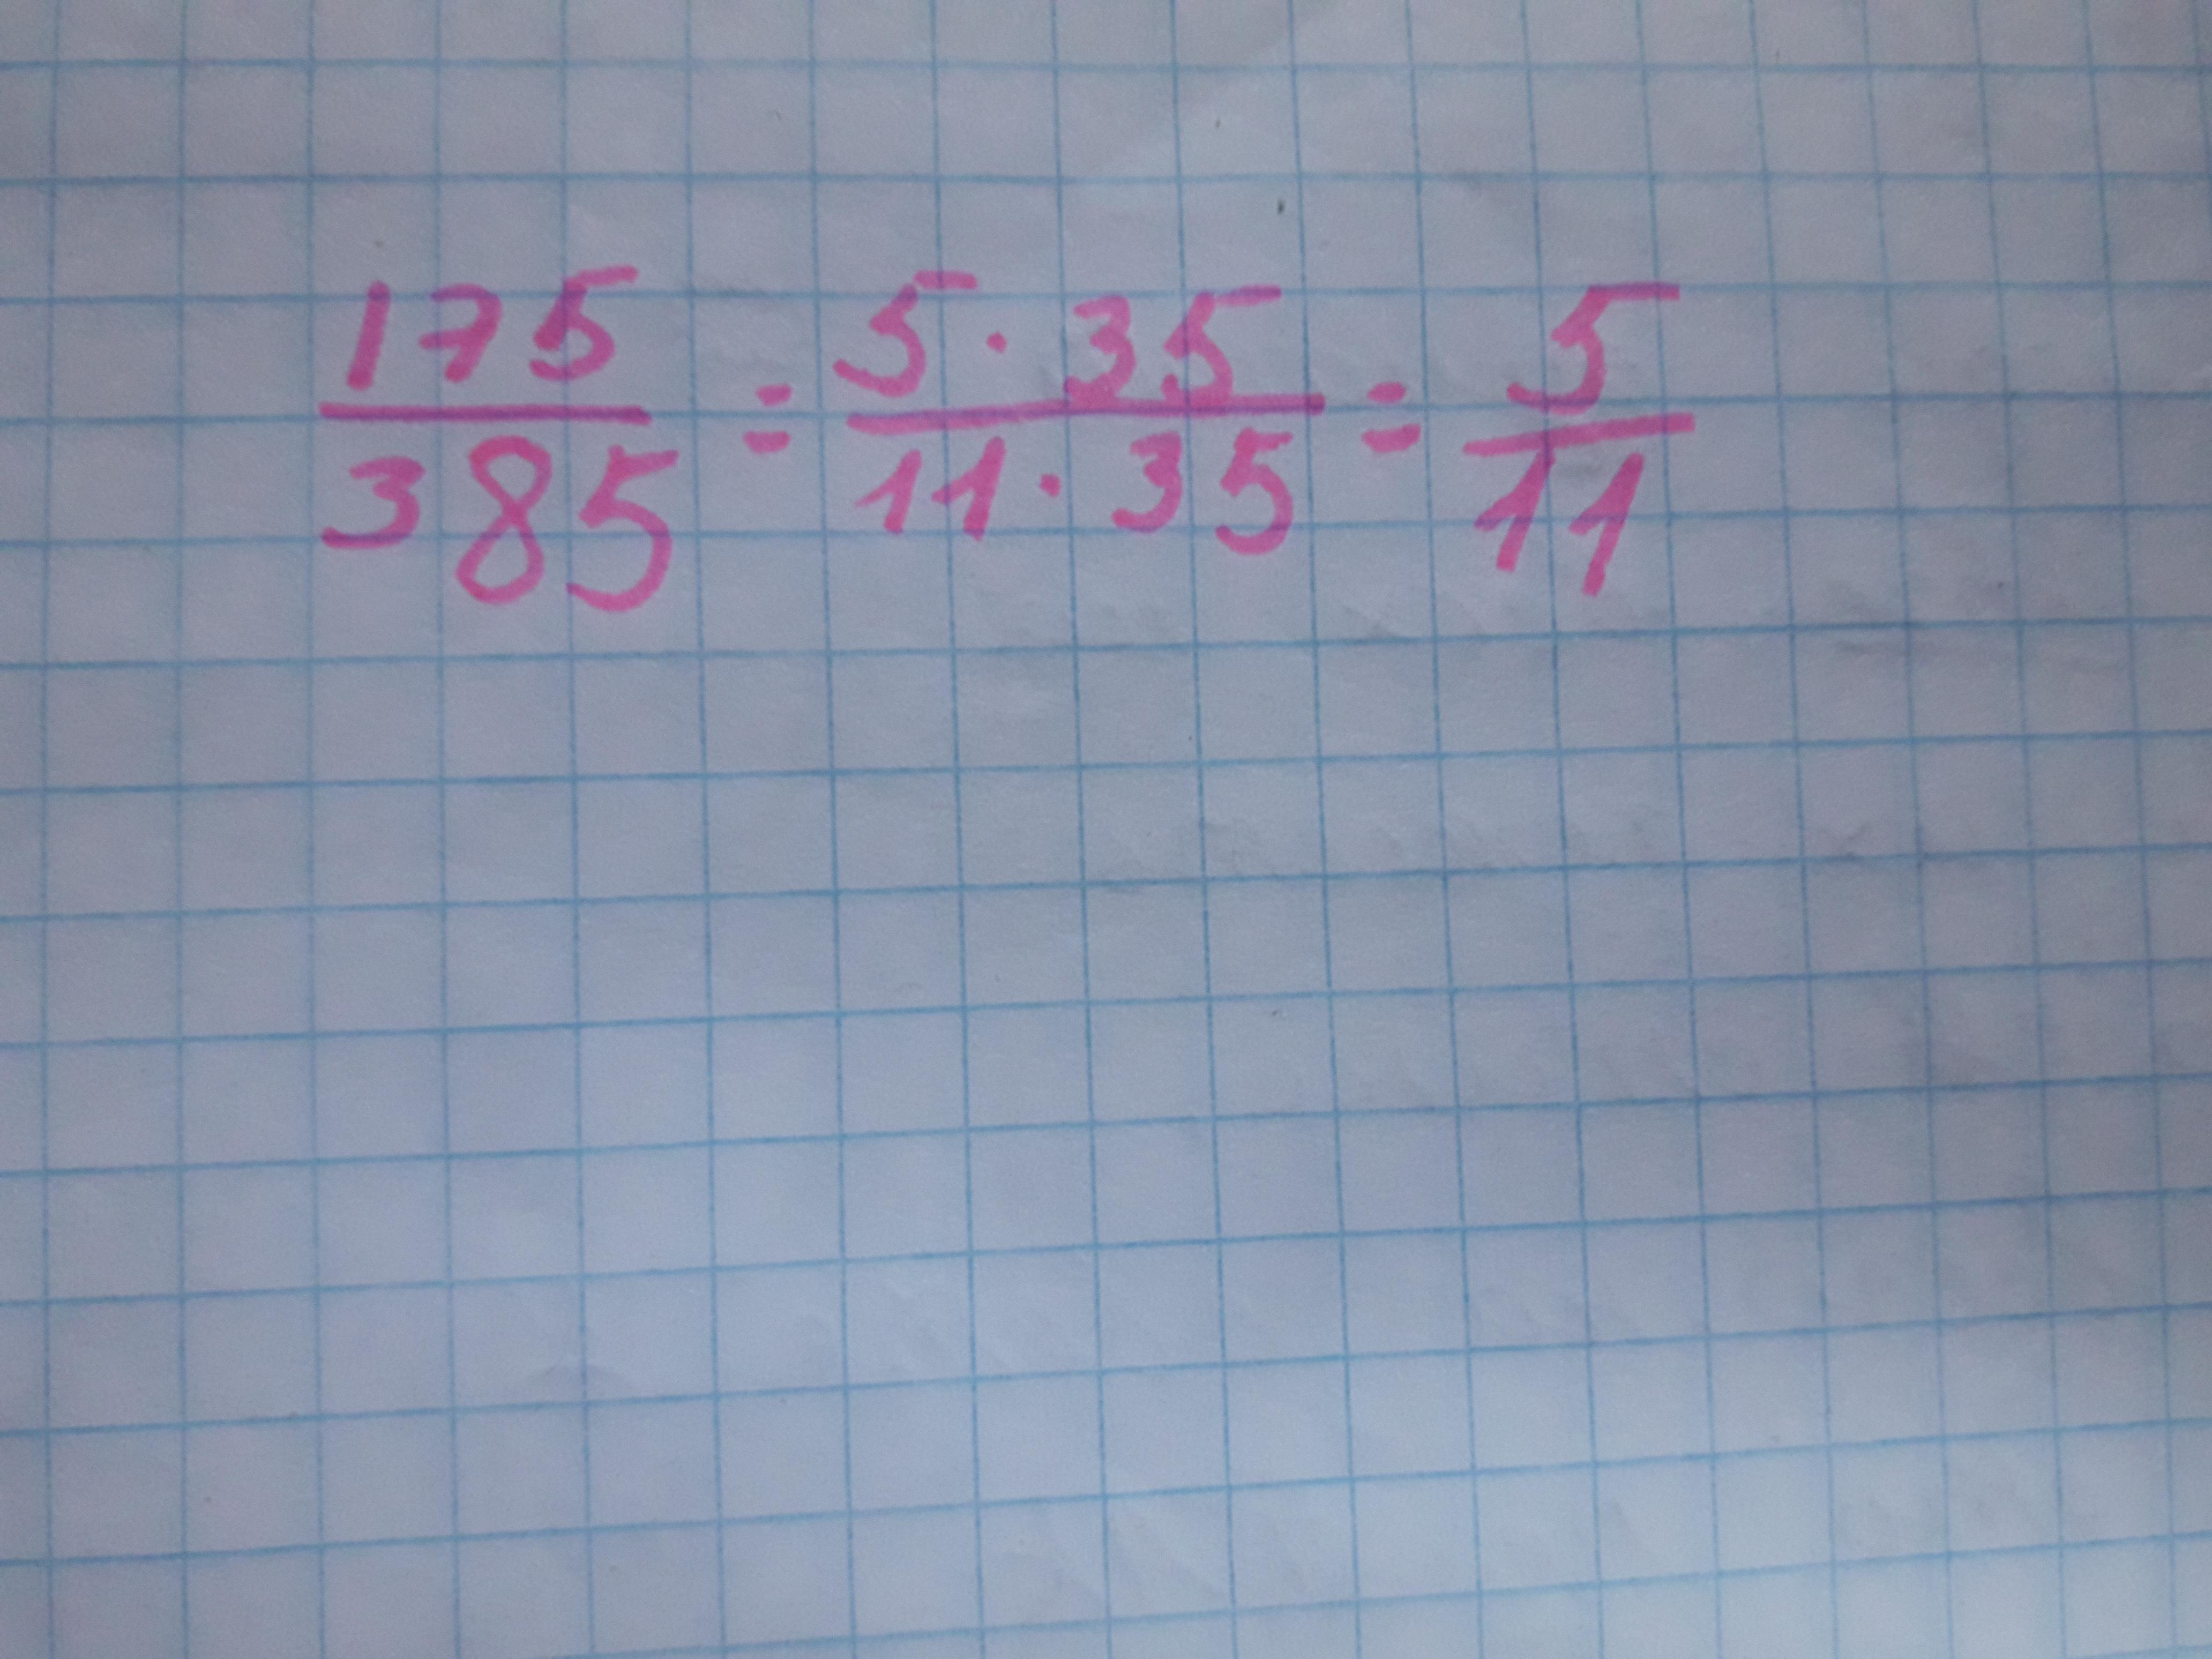 175/385 = 5·35/11·35 = 5/11